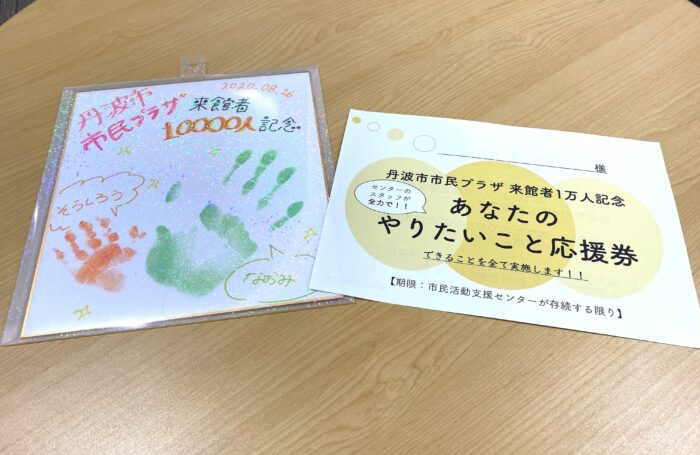 2020.08.26
丹波市
市民プラザ 来館者
10000人記念
そうしろう
なおみ
様
丹波市市民プラザ 来館者1万人記念
センターの
スタッフが
全力で！！
あなたの
やりたいこと応援券
できることを全て実施します！！
【期限：市民活動支援センターが存続する限り】